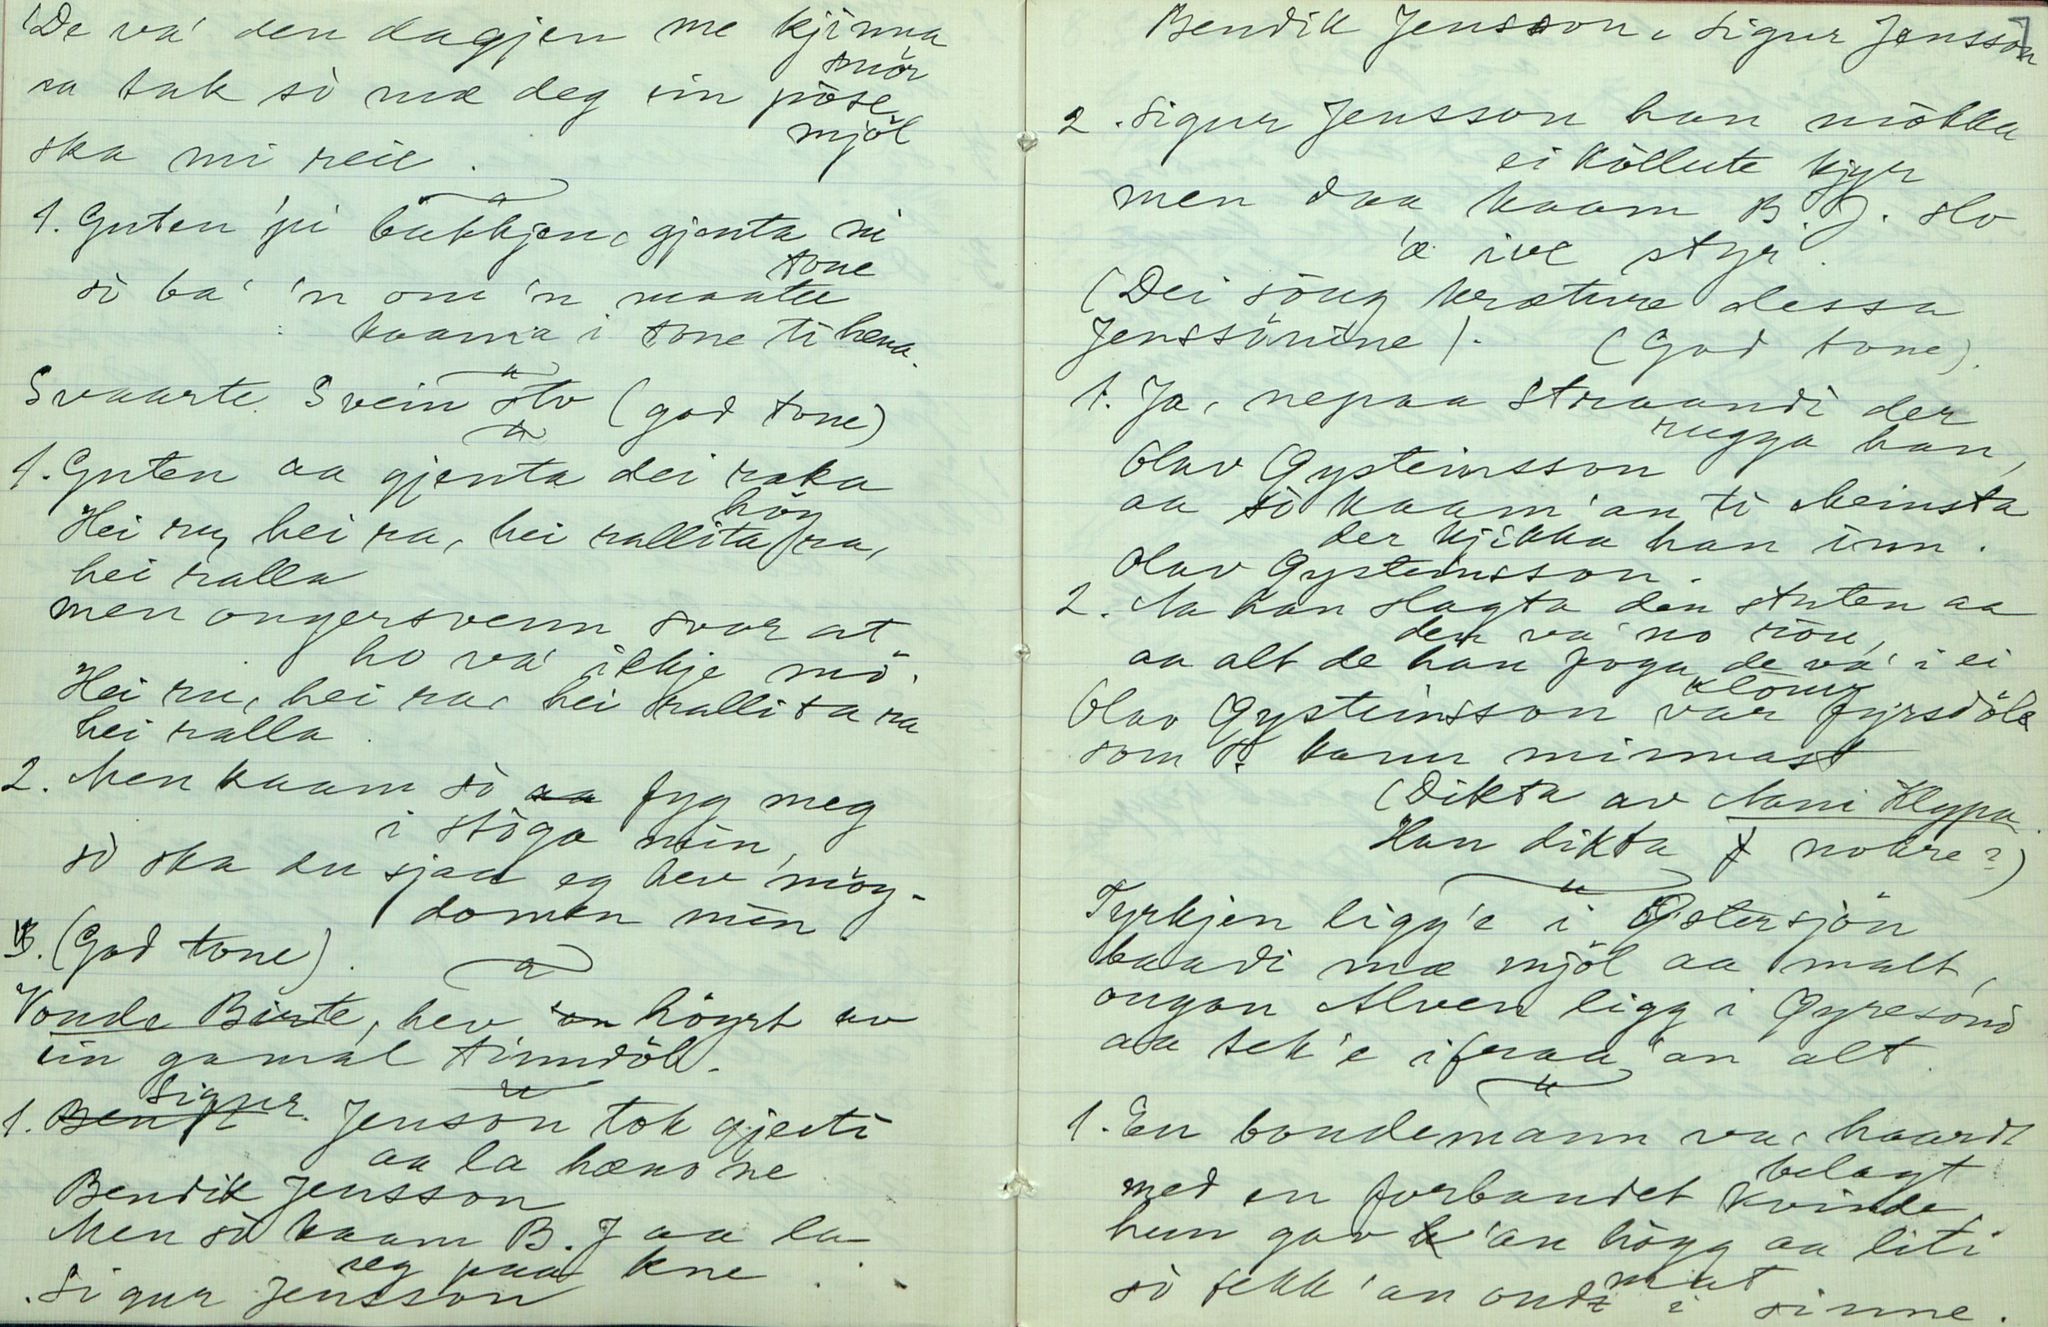 De va' den dagjen me kjinna
smör
aa tak sò mæ deg ein pòse
mjöl
ska mi reie.
1. Guten på bakkjen, gjenta ni
sò ba' 'n om 'n maatte
tone
kaama i tone ti henn.
Svaarte Svein sto (god tone)
1. Guten aa gjenta dei raka
höy
Hei ru, hei ra, hei rallita ra,
hei ralla
men ongersvenn svor at
ho va' ikkje mö.
Hei ru, hei ra, hei rallita ra
hei ralla.
2. Men kaam sò aa fyg meg
i stòga min,
sò ska du sjaa eg hev möy-
domen min.
(God tone).
Vonde Birte, hev 'an höyrt av
ein gamal tinndöl.
Sigur
1. Bendt Jenson tok gjeiti
aa la hæno ne
Bendik Jensson
Men sò kaam B. J aa la
seg paa kne
Sigur Jensson
7
Bendik Jensson, Sigur Jensson
2. Sigur Jensson han mòkka
ei kòllute kjyr
men daa kaam B. J. slo
'æ ive styr.
(Dei söng kræture dessa
Jenssönine). (God tone).
1. Ja, nepaa Straandi der
rugga han,
Olav Øysteinsson
aa sò kaam 'an ti Meinsta
der kjikka han inn.
Olav Øysteinsson.
2. Aa han slagta den stuten aa
den va' no
aa alt de han joga de va' i ei
Olav Øysteinsson var fyrsdöle
som S. kann minnast
(Dikta av Aani Klypa.
Han dikta nokre?)
Tyrkjen ligg'e i Østersjön
baadi mæ mjöl aa malt,
ongan Alven ligg i Øyresond
aa tek'e ifraa 'an alt.
1. En bondemann va, haardt
belagt
med en forbandet kvinde
hun gav 'an högg aa liti
mat
sò fekk 'an ondt i sinne.